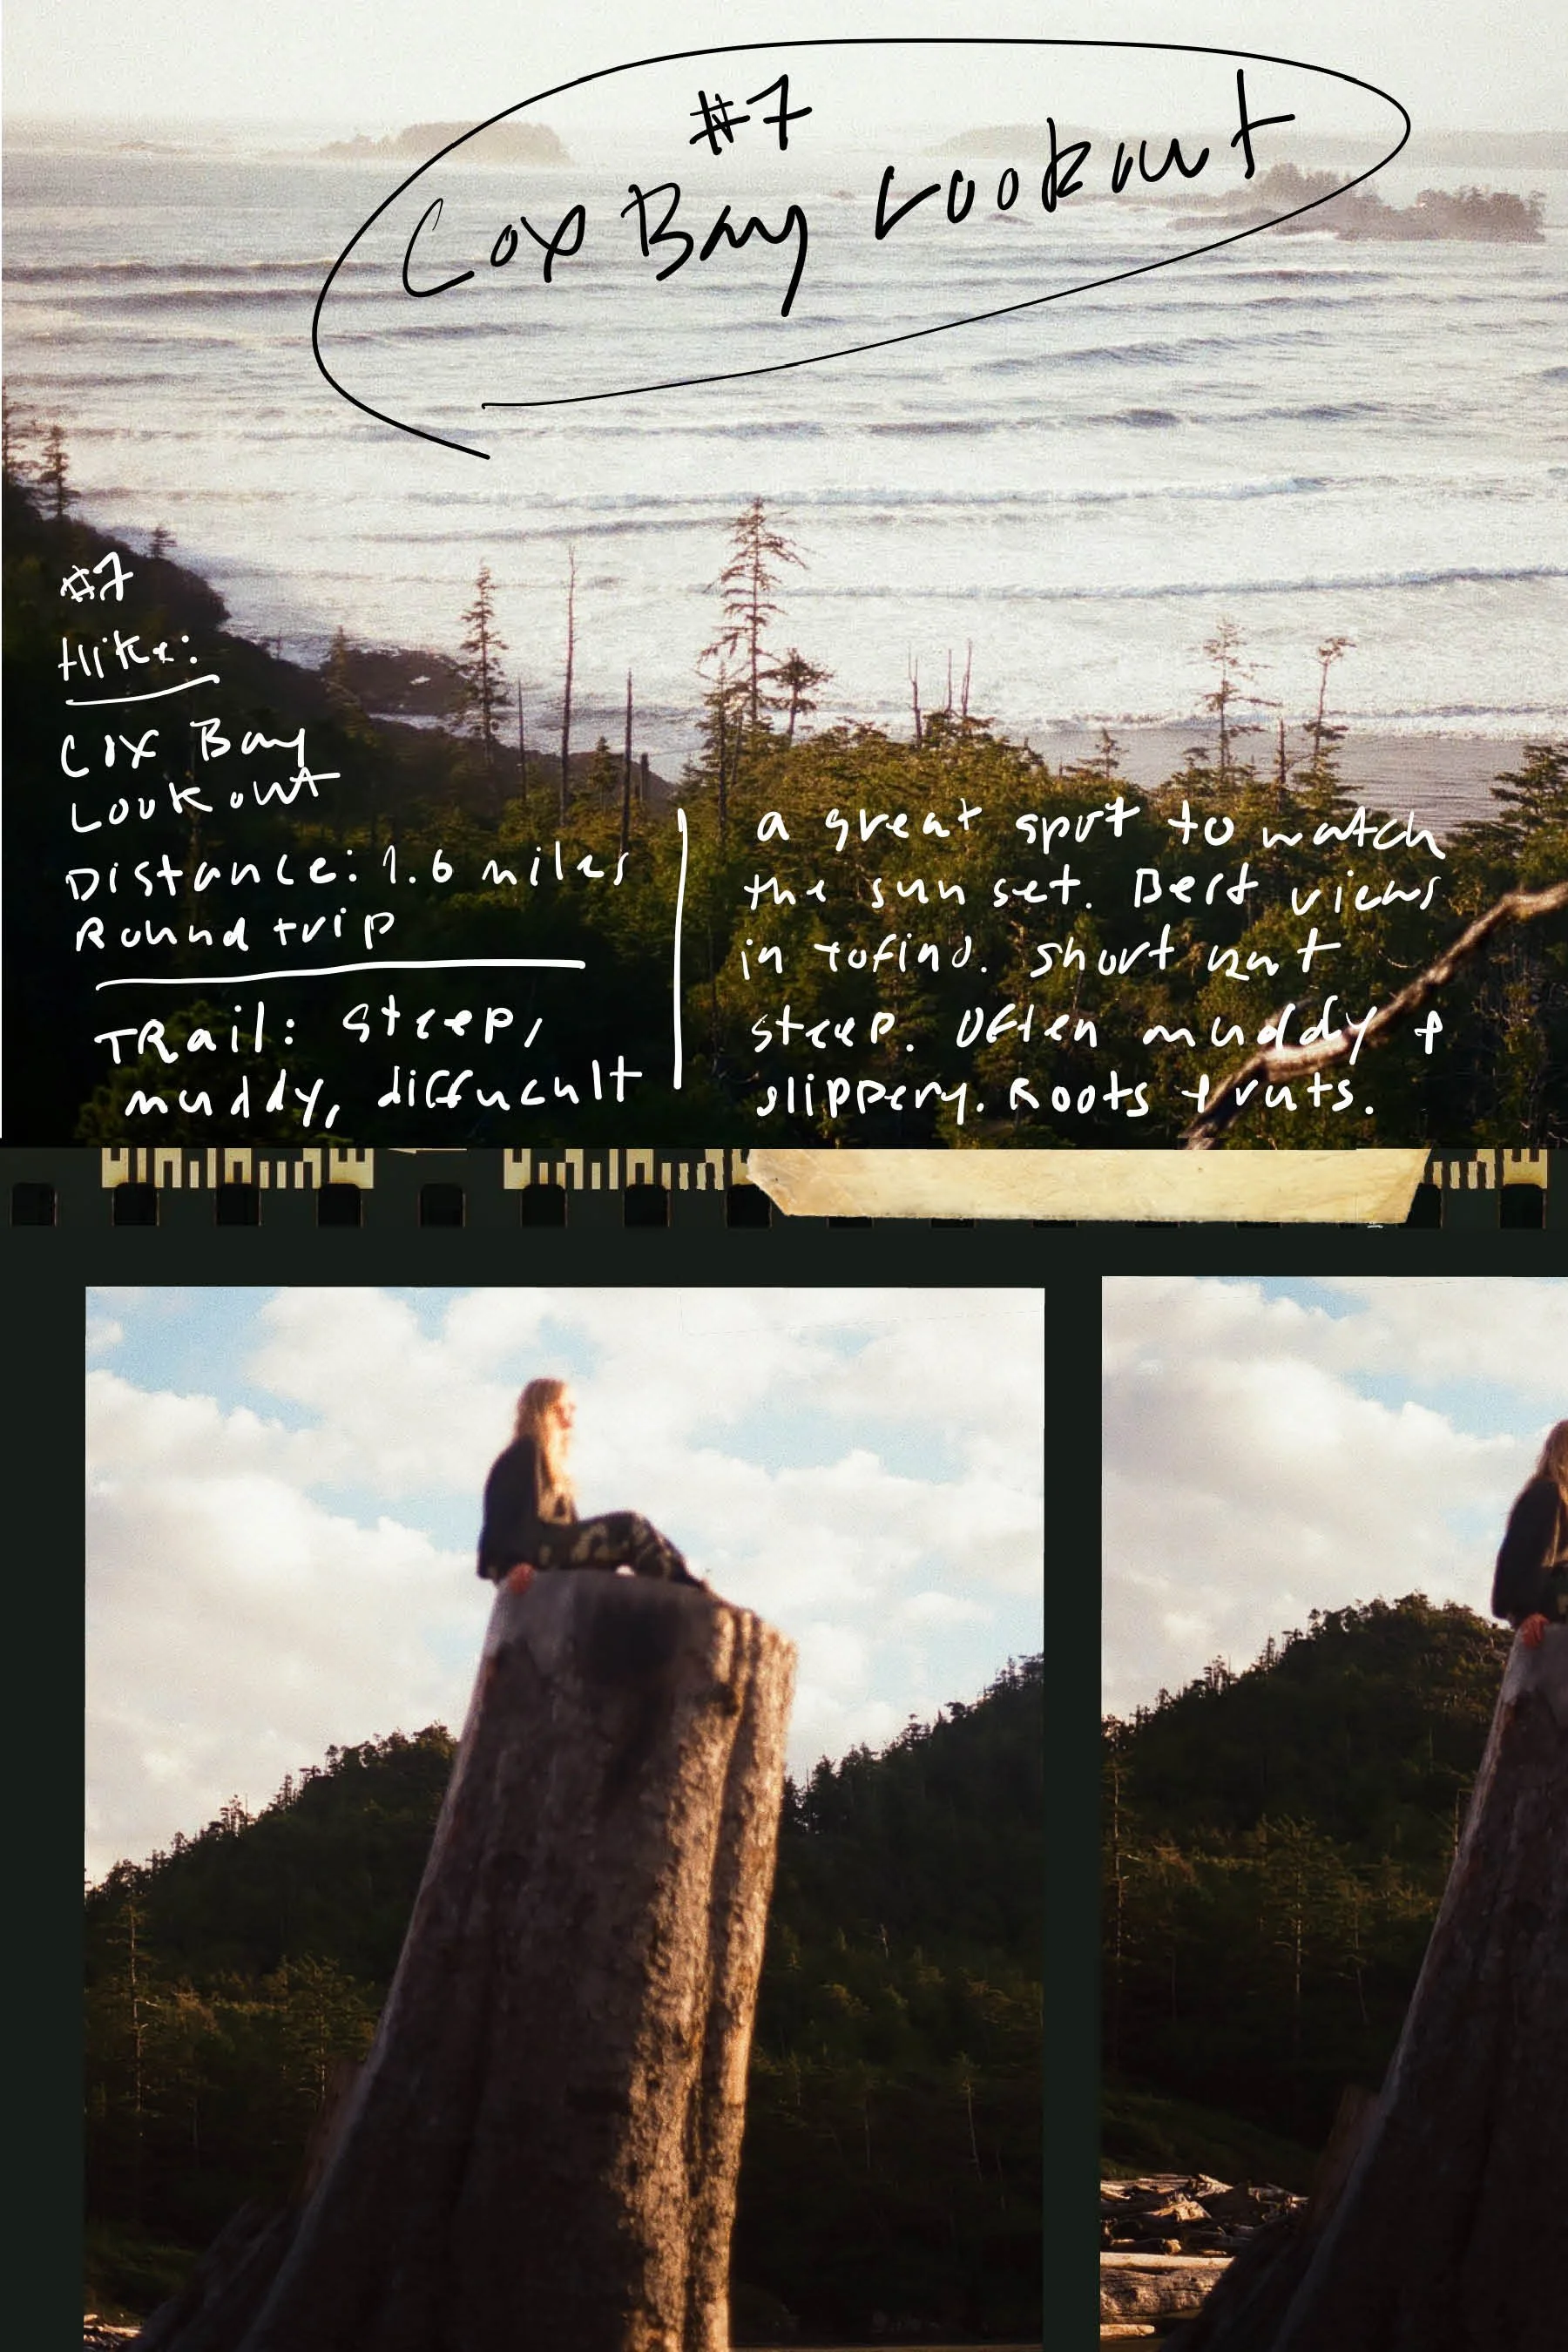 #7
Cox Bay Lookout
#7
Hike:
Cox Bay
Lookout
Distance: 1.6 miles
Round trip
TRail: steep,
muddy, difficult
a great spot to watch
the sun set. Best views
in tofino. short but
steep. Often muddy +
slippery. Roots + ruts.